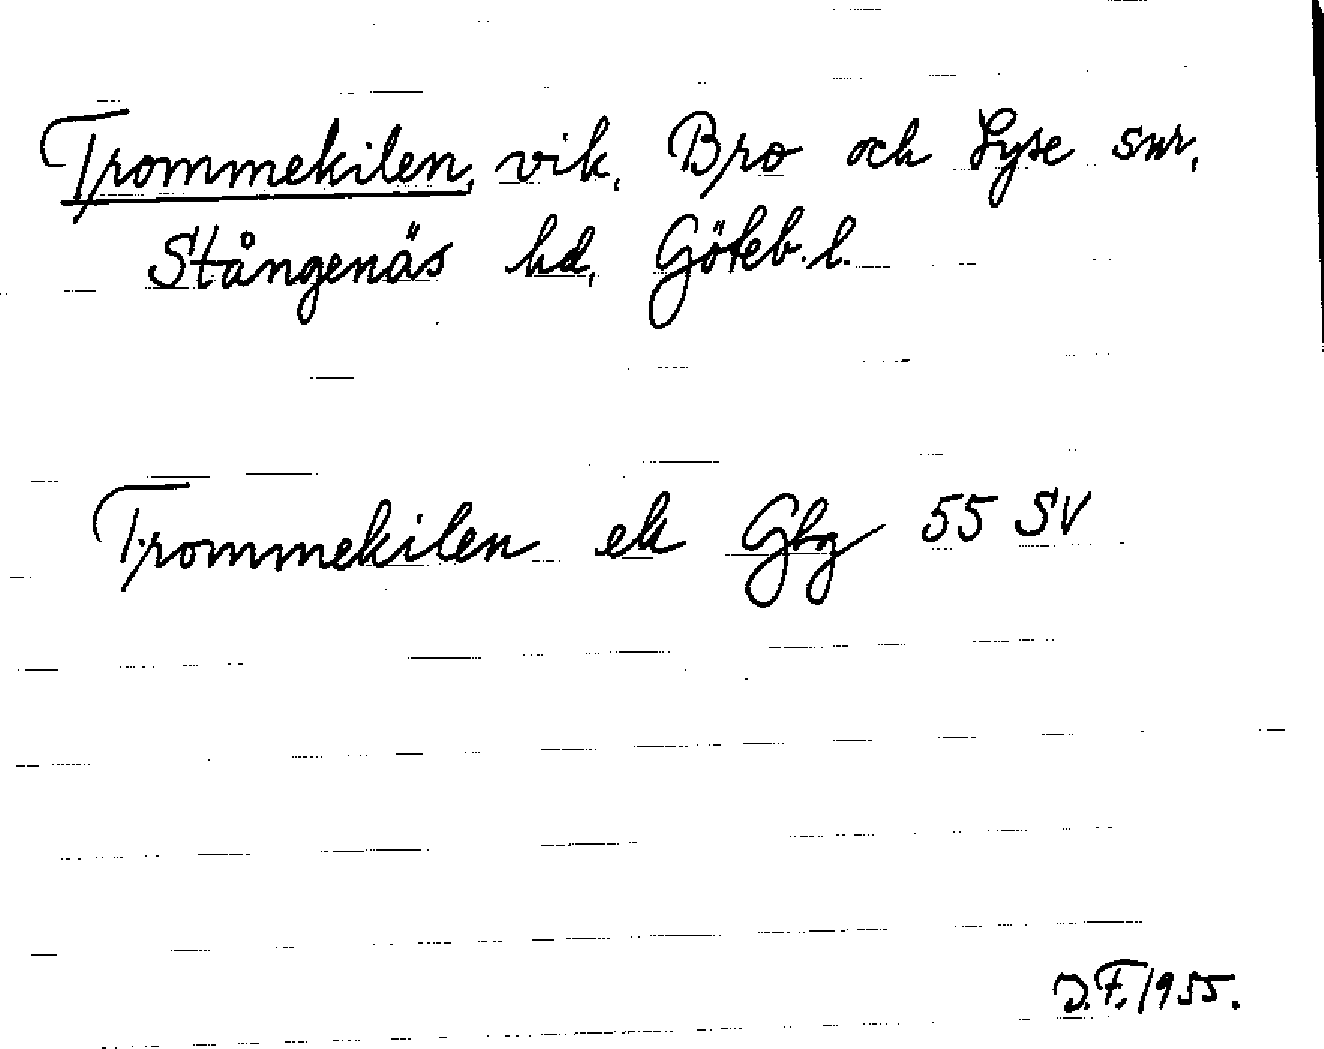 Trommekilen, vik, Bro och Lyse snr,
Stångenäs hd, Göteb. l.
Trommekilen ek Gbg 55 SV
D.F. 1955.